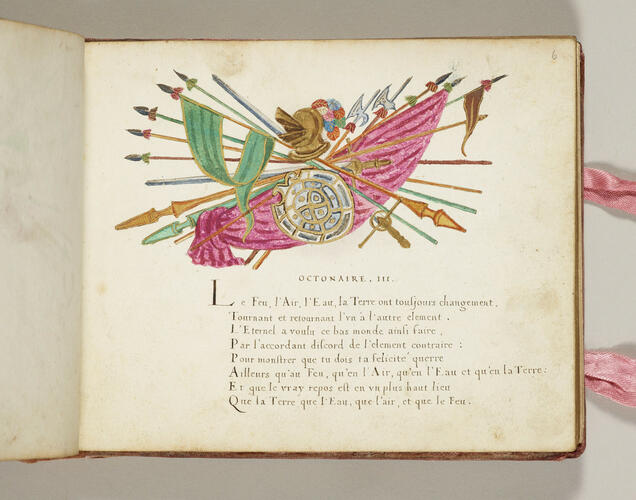 6
OCTONAIRE. III.
Le Feu, l'Air, l'Eau, la Terre ont tousjours changement,
Tournant et retournant l'vn à l'autre element.
L'Eternel a voulu ce bas monde ainsi faire,
Par l'accordant discord de l'element contraire:
Pour monstrer que tu dois ta felicité querre
Ailleurs qu'au Feu, qu'en l'Air, qu'en l'Eau et qu'en la Terre:
Et que le vray repos est en vn plus haut lieu
Que la Terre que l'Eau, que l'air, et que le Feu.